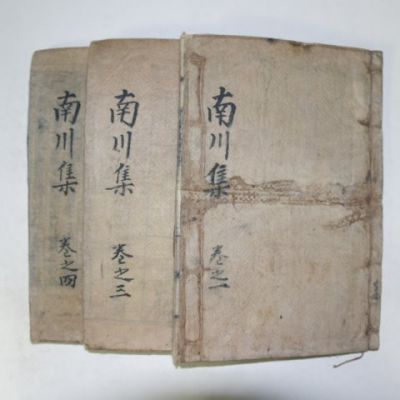 南川集 卷之一
南川集 卷之三
南川集 卷之四